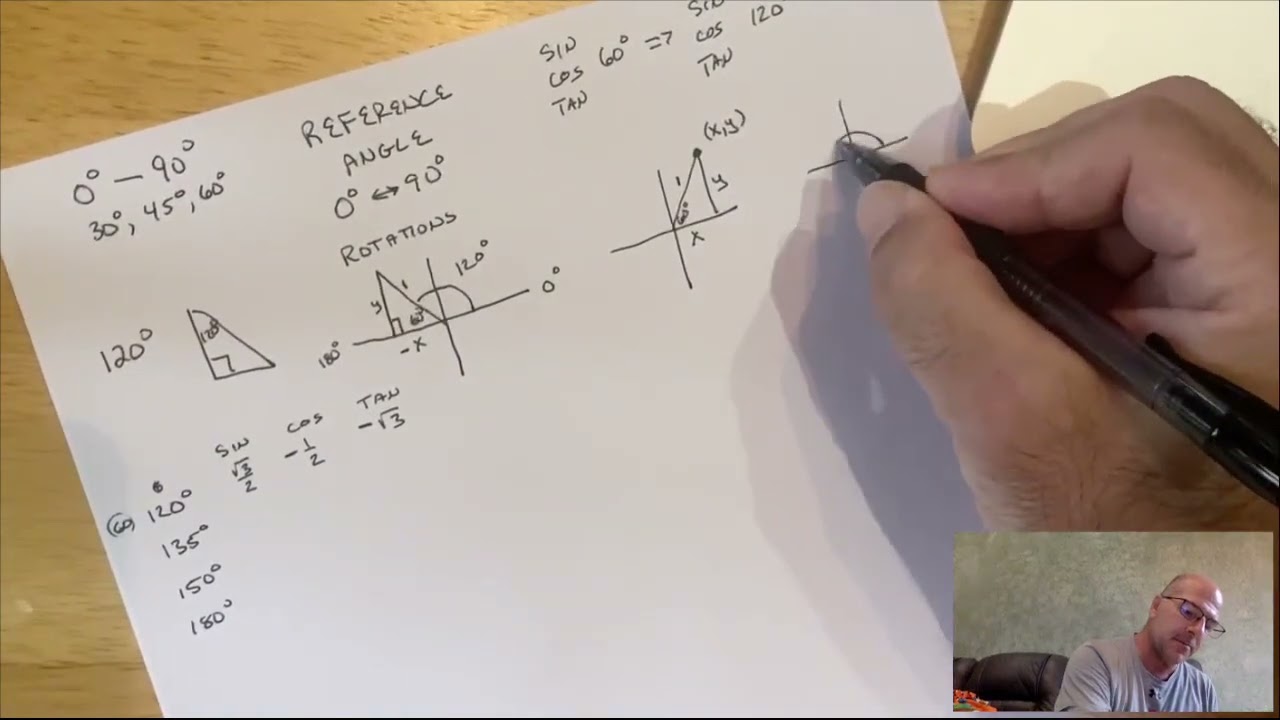 0° — 90°
30°, 45°, 60°
REFERENCE
ANGLE
0° ↔ 90°
ROTATIONS
SIN
COS 60° => COS 120°
TAN
SIN
TAN
(x,y)
1
y
60°
x
120°
120°
y
1
60°
120°
0°
180°
-x
SIN COS TAN
√3/2 -1/2 -√3
(60) 120°
135°
150°
180°